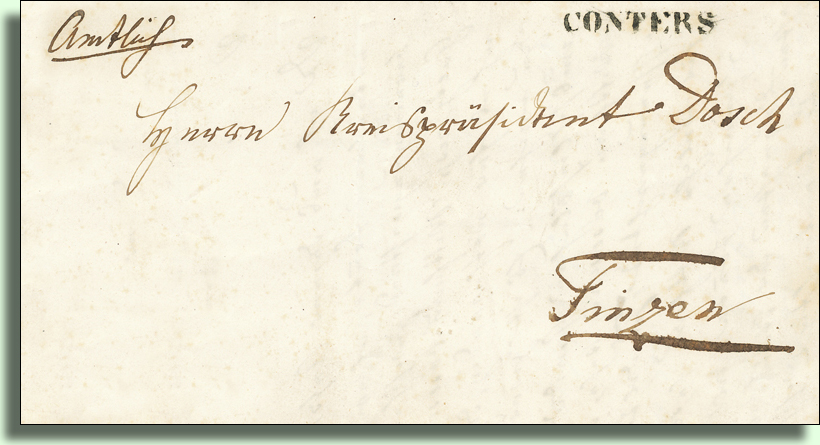 Amtlich
CONTERS
Herrn Kreispräsident Dosch
Tinzen